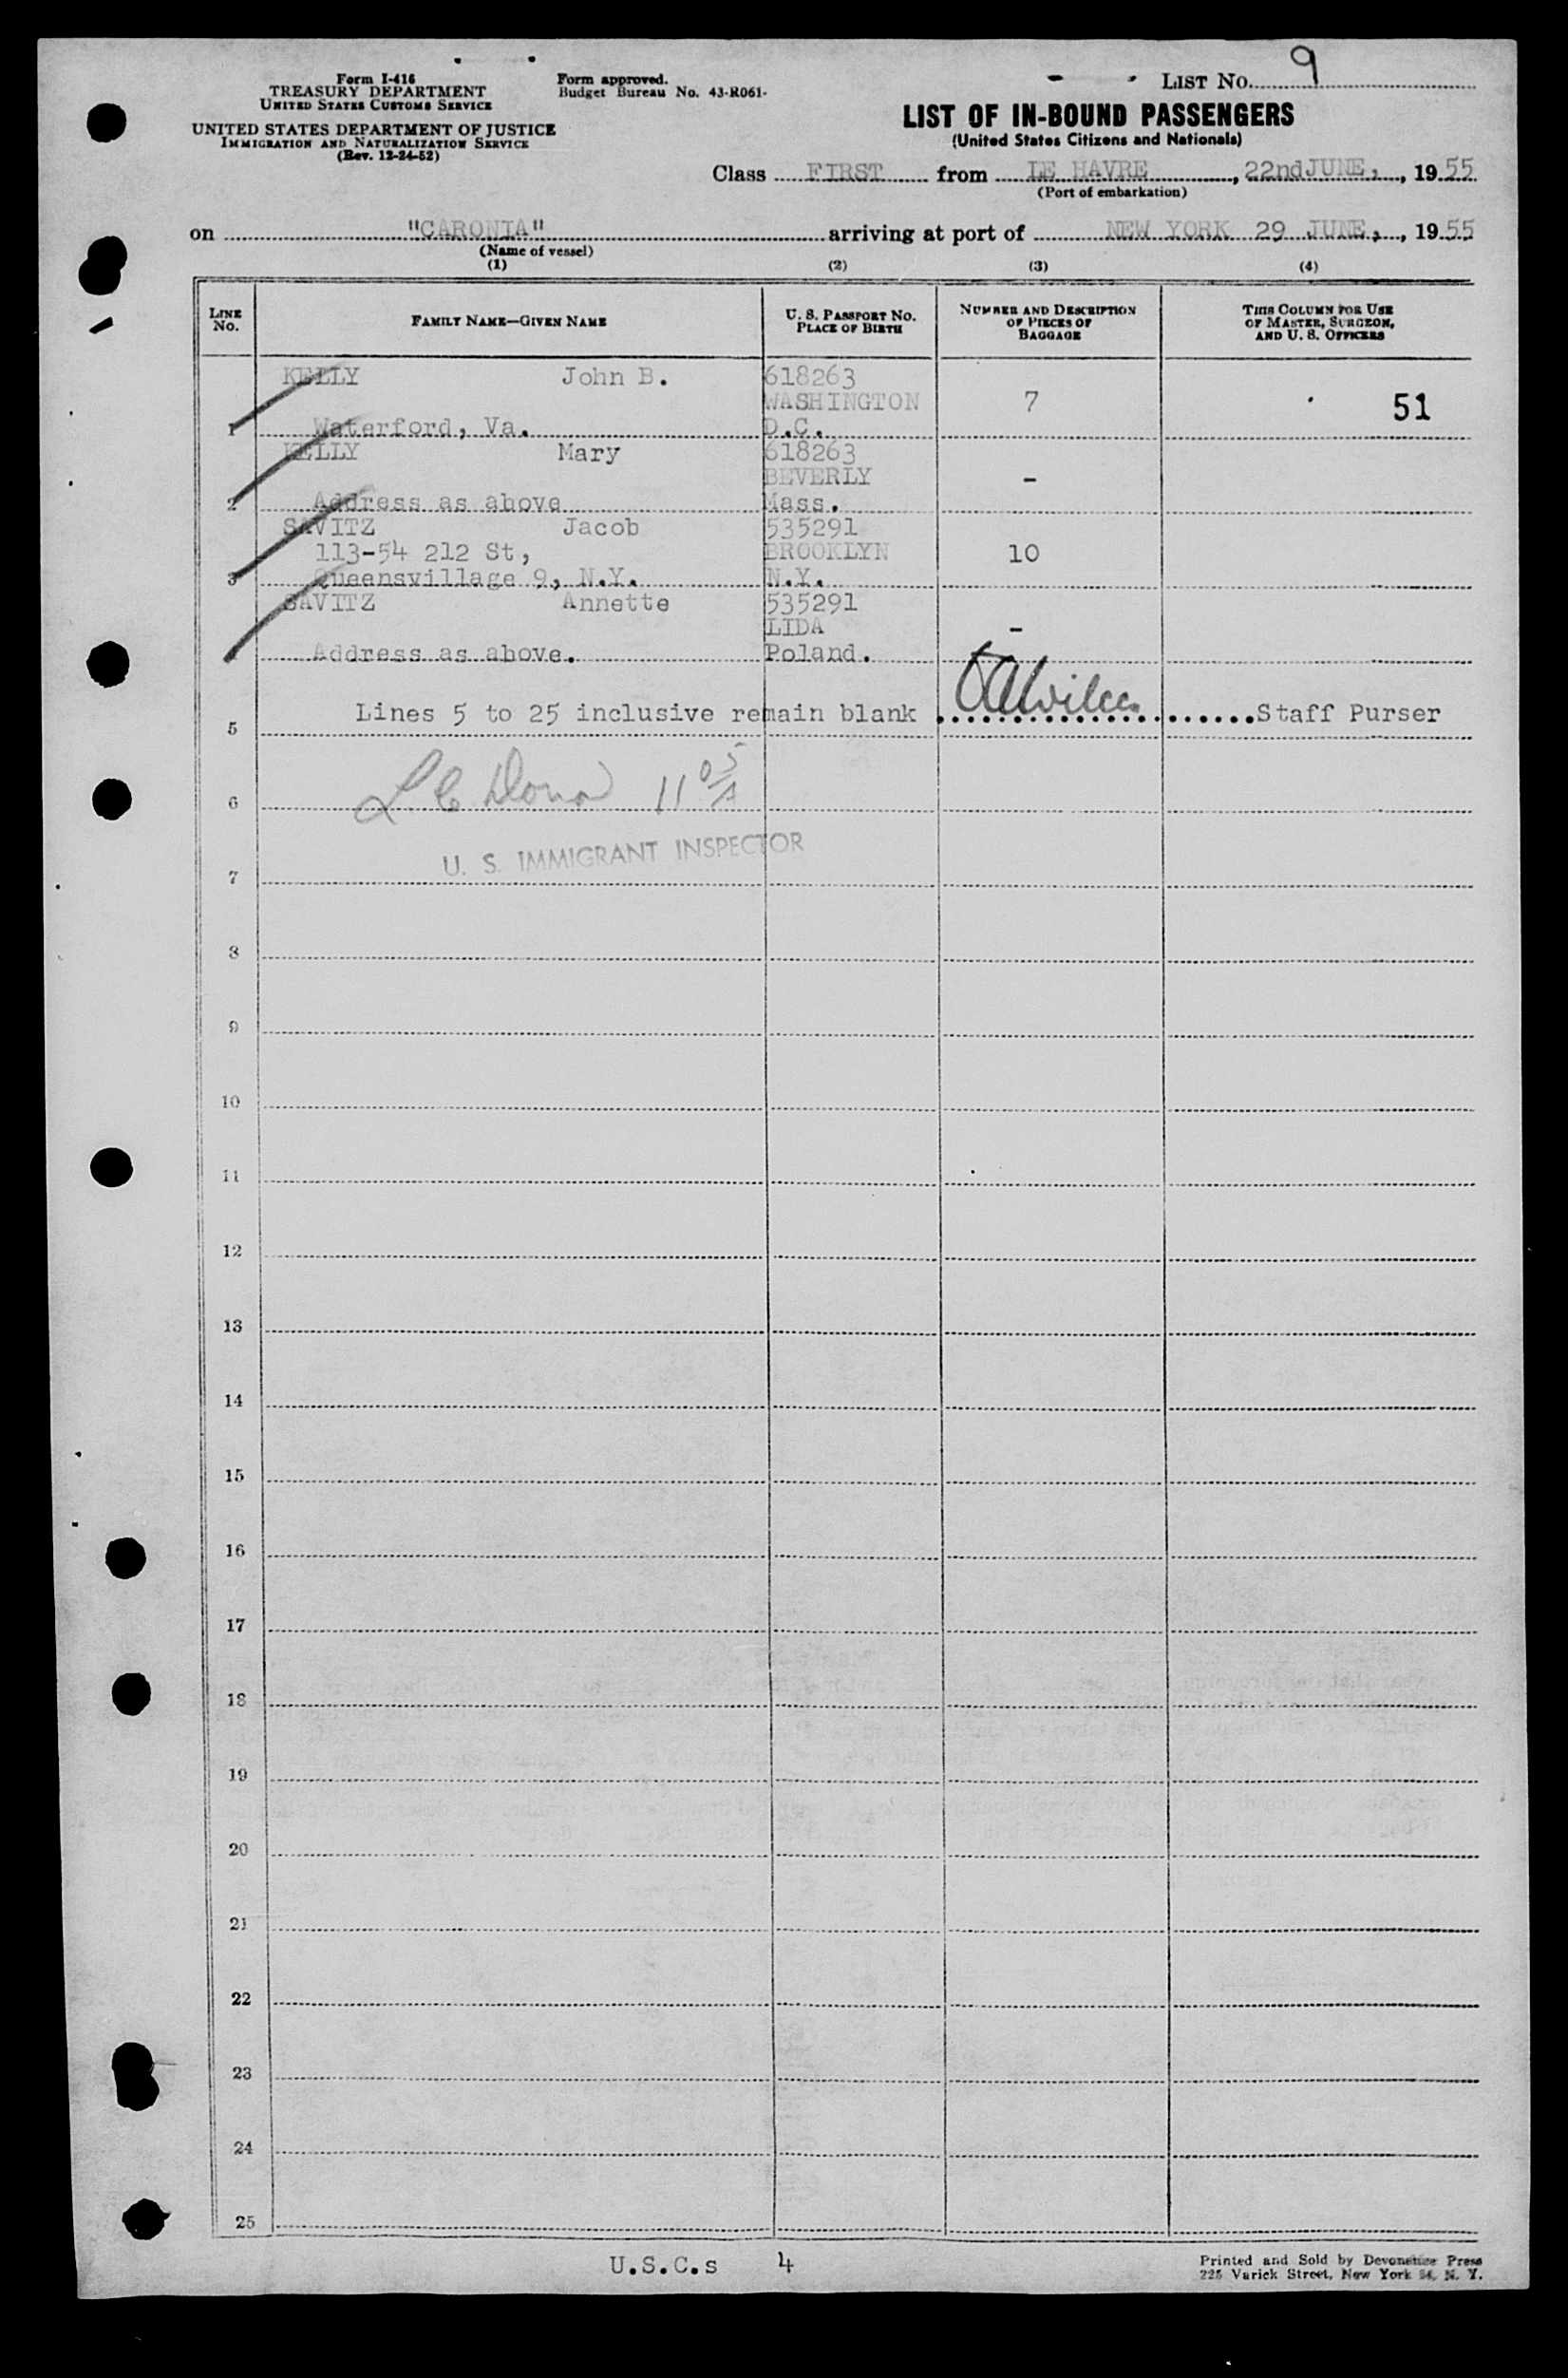 Form I-416
TREASURY DEPARTMENT
UNITED STATES CUSTOMS SERVICE
UNITED STATES DEPARTMENT OF JUSTICE
IMMIGRATION AND NATURALIZATION SERVICE
(Rev. 12-24-52)
Form approved.
Budget Bureau No. 43-R061-
LIST NO. 9
LIST OF IN-BOUND PASSENGERS
(United States Citizens and Nationals)
Class FIRST from LE HAVRE, 22nd JUNE, 1955
(Port of embarkation)
on "CARONIA" arriving at port of NEW YORK 29 JUNE, 1955
(Name of vessel)
(1) (2) (3) (4)
LINE NO.
FAMILY NAME—GIVEN NAME
U. S. PASSPORT NO.
PLACE OF BIRTH
NUMBER AND DESCRIPTION
OF PIECES OF
BAGGAGE
THIS COLUMN FOR USE
OF MASTER, SURGEON,
AND U. S. OFFICERS
KELLY John B. 618263
WASHINGTON 7 51
1 Waterford, Va. D.C.
KELLY Mary 618263
BEVERLY -
2 Address as above Mass.
SAVITZ Jacob 535291
113-54 212 St, BROOKLYN 10
3 Queensvillage 9, N.Y. N.Y.
SAVITZ Annette 535291
LIDA -
Address as above. Poland.
5 Lines 5 to 25 inclusive remain blank Staff Purser
6 11 05
U. S. IMMIGRANT INSPECTOR
7
8
9
10
11
12
13
14
15
16
17
18
19
20
21
22
23
24
25
U.S.C.s 4
Printed and Sold by Devonshire Press
225 Varick Street, New York 14, N. Y.